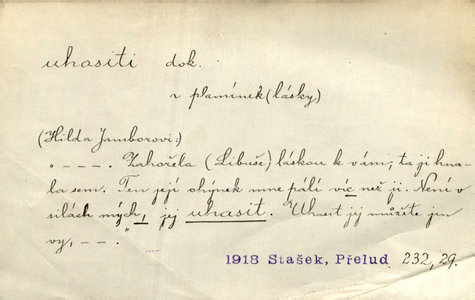 uhasiti dok.
r plamínek (lásky)
(Hilda Jamborovi:)
„ – – – . Zahořela (Libuše) láskou k vám; ta ji hna-
la sem. Ten její ohýnek mne pálí víc než ji. Není v
silách mých, jej uhasit. Uhasit jej můžete jen
vy, – – . "
1918 Stašek, Přelud 232, 29.